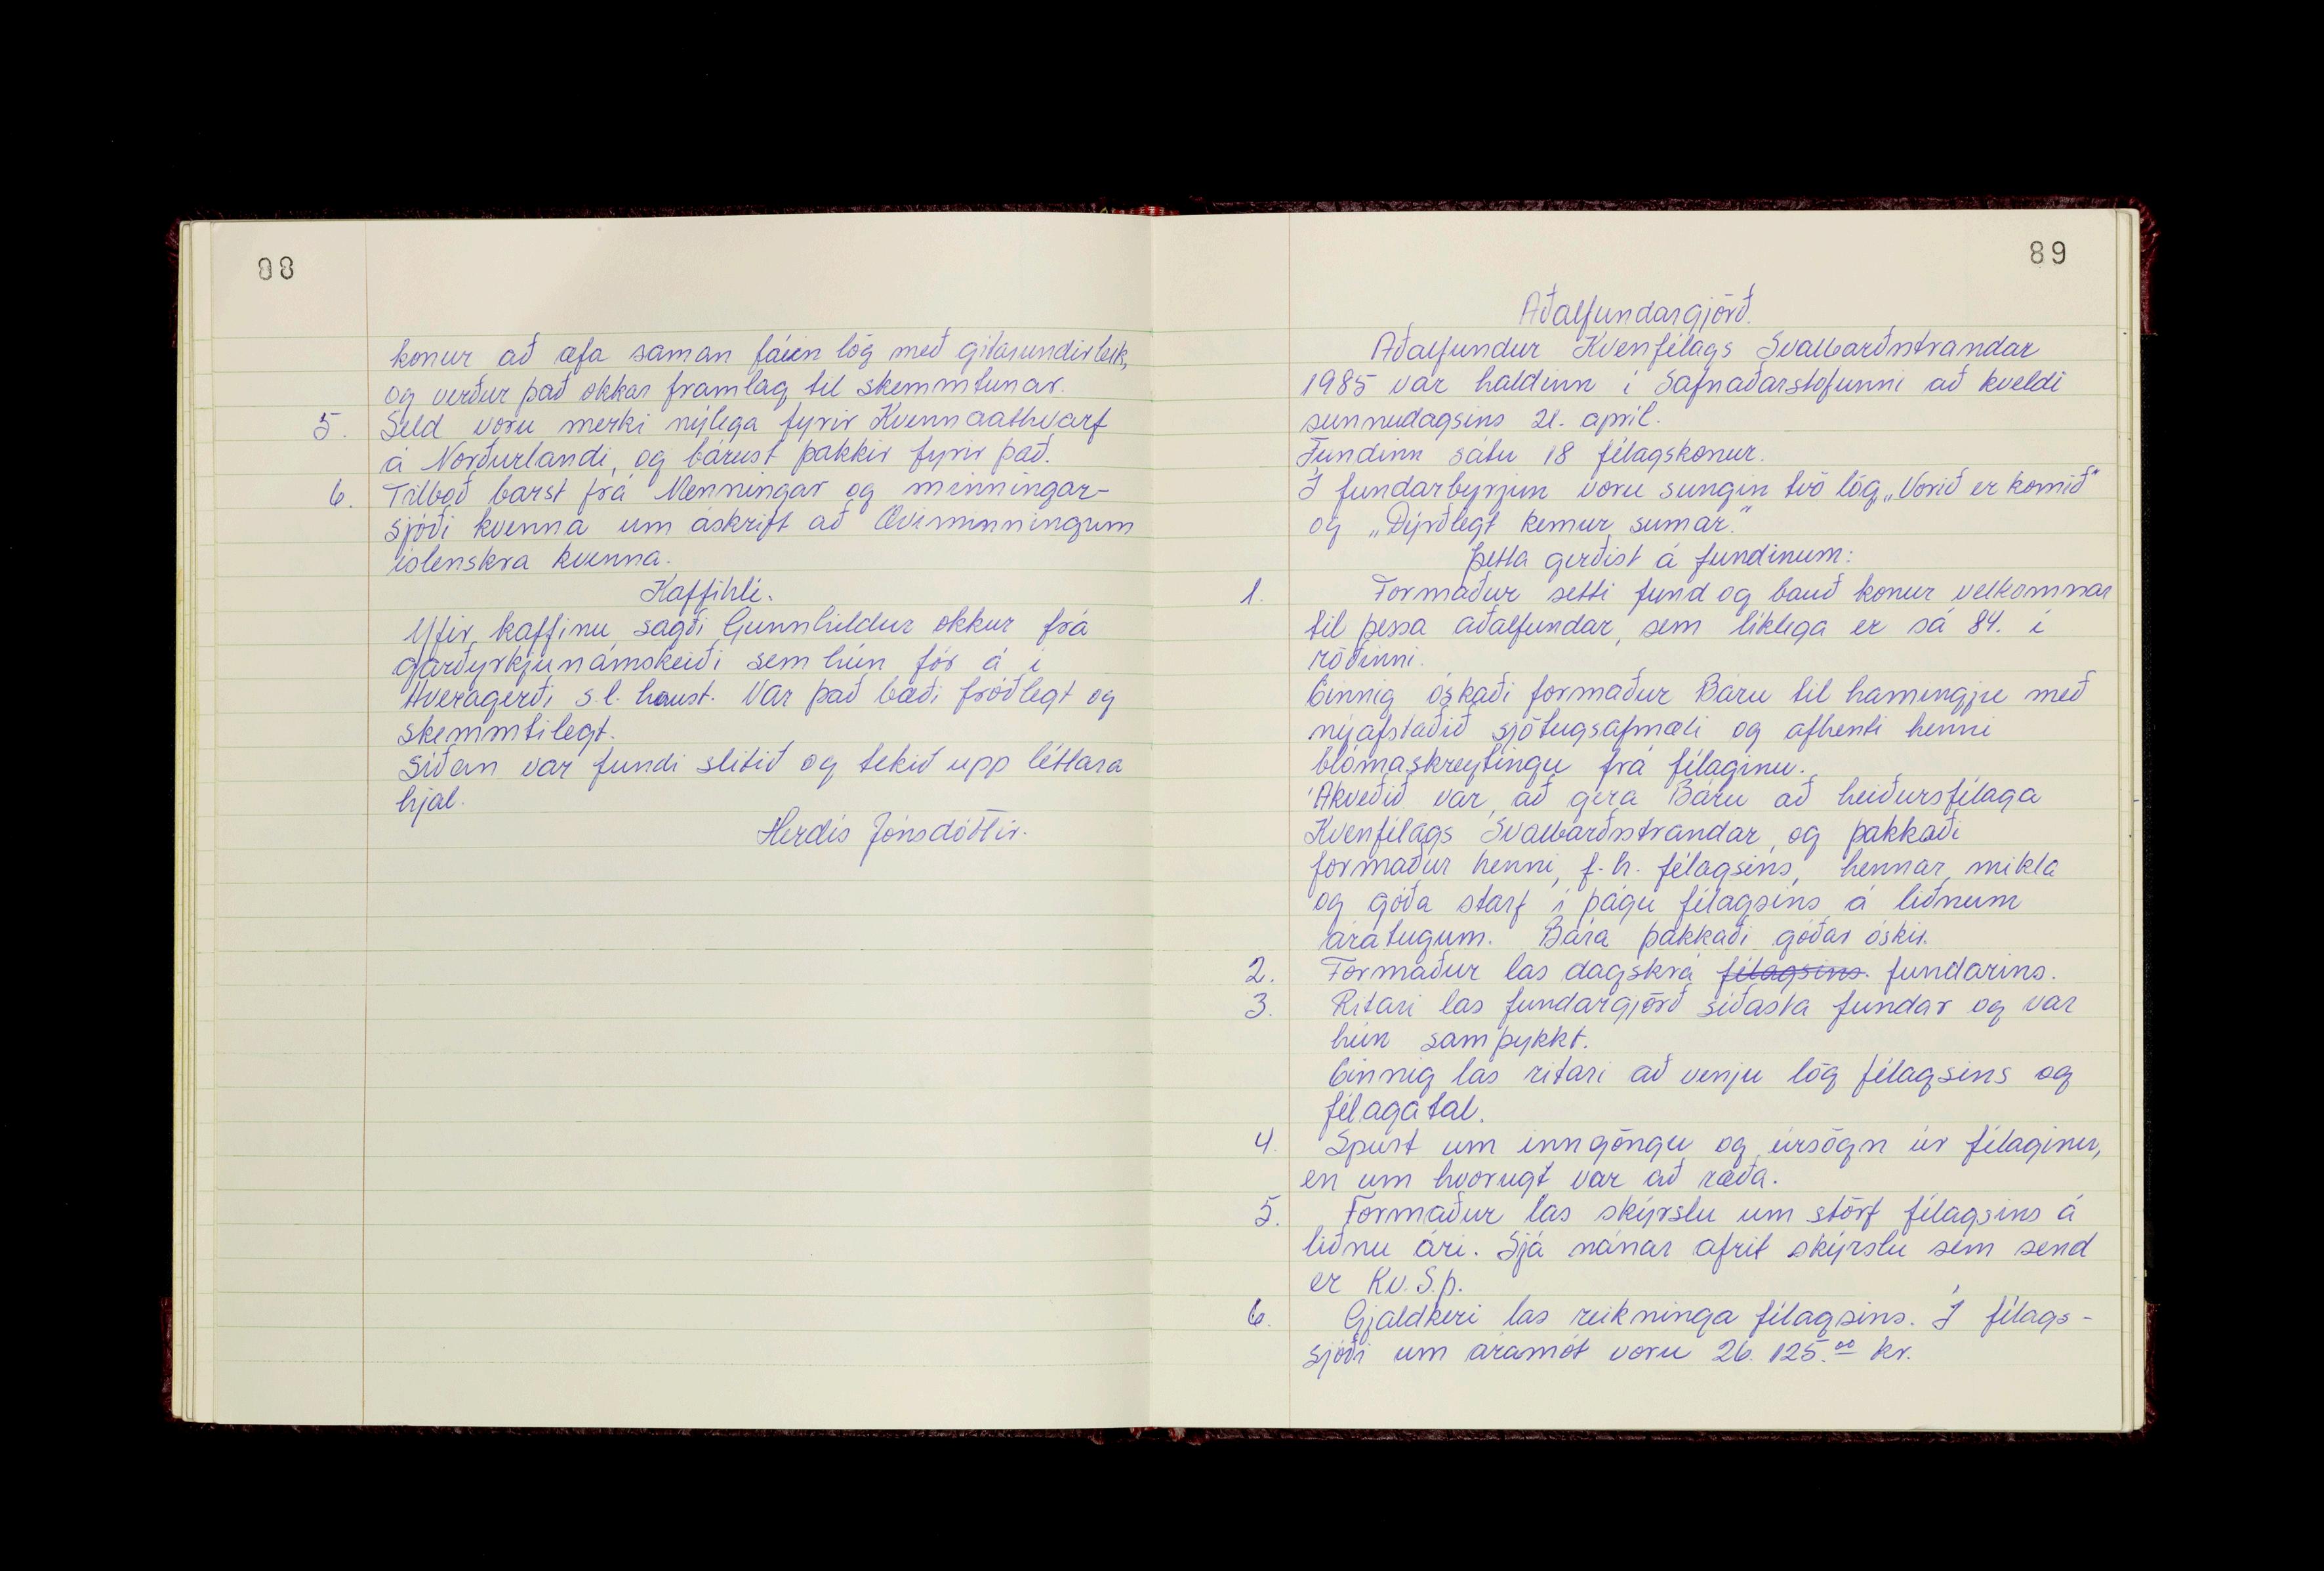 88
konur að æfa saman fáein lög með gítarundirleik,
og verður það okkar framlag til skemmtunar.
5. Seld voru merki nýlega fyrir Kvennaathvarf
á Norðurlandi, og bárust þakkir fyrir það.
6. Tilboð barst frá Menningar og minningar-
sjóði kvenna um áskrift að Æviminningum
íslenskra kvenna.
Kaffihlé.
Yfir kaffinu sagði Gunnhildur okkur frá
garðyrkjunámskeiði sem hún fór á í
Hveragerði s.l. haust. Var það bæði fróðlegt og
skemmtilegt.
Síðan var fundi slitið og tekið upp léttara
hjal.
Herdís Jónsdóttir.
89
Aðalfundargjörð.
Aðalfundur Kvenfélags Svalbarðsstrandar
1985 var haldinn í Safnaðarstofunni að kveldi
sunnudagsins 21. apríl.
Fundinn sátu 18 félagskonur.
Í fundarbyrjun voru sungin tvö lög „Vorið er komið“
og „Dýrðlegt kemur sumar.“
Þetta gerðist á fundinum:
1. Formaður setti fund og bauð konur velkomnar
til þessa aðalfundar, sem líklega er sá 84. í
röðinni.
Einnig óskaði formaður Báru til hamingju með
nýafstaðið sjötugsafmæli og afhenti henni
blómaskreytingu frá félaginu.
Ákveðið var að gera Báru að heiðursfélaga
Kvenfélags Svalbarðsstrandar, og þakkaði
formaður henni, f.h. félagsins, hennar mikla
og góða starf í þágu félagsins á liðnum
áratugum. Bára þakkaði góðar óskir.
2. Formaður las dagskrá félagsins. fundarins.
3. Ritari las fundargjörð síðasta fundar og var
hún samþykkt.
Einnig las ritari að venju lög félagsins og
félagatal.
4. Spurt um inngöngu og úrsögn úr félaginu,
en um hvorugt var að ræða.
5. Formaður las skýrslu um störf félagsins á
liðnu ári. Sjá nánar afrit skýrslu sem send
er Kv. S.þ.
6. Gjaldkeri las reikninga félagsins. Í félags-
sjóði um áramót voru 26.125.00 kr.